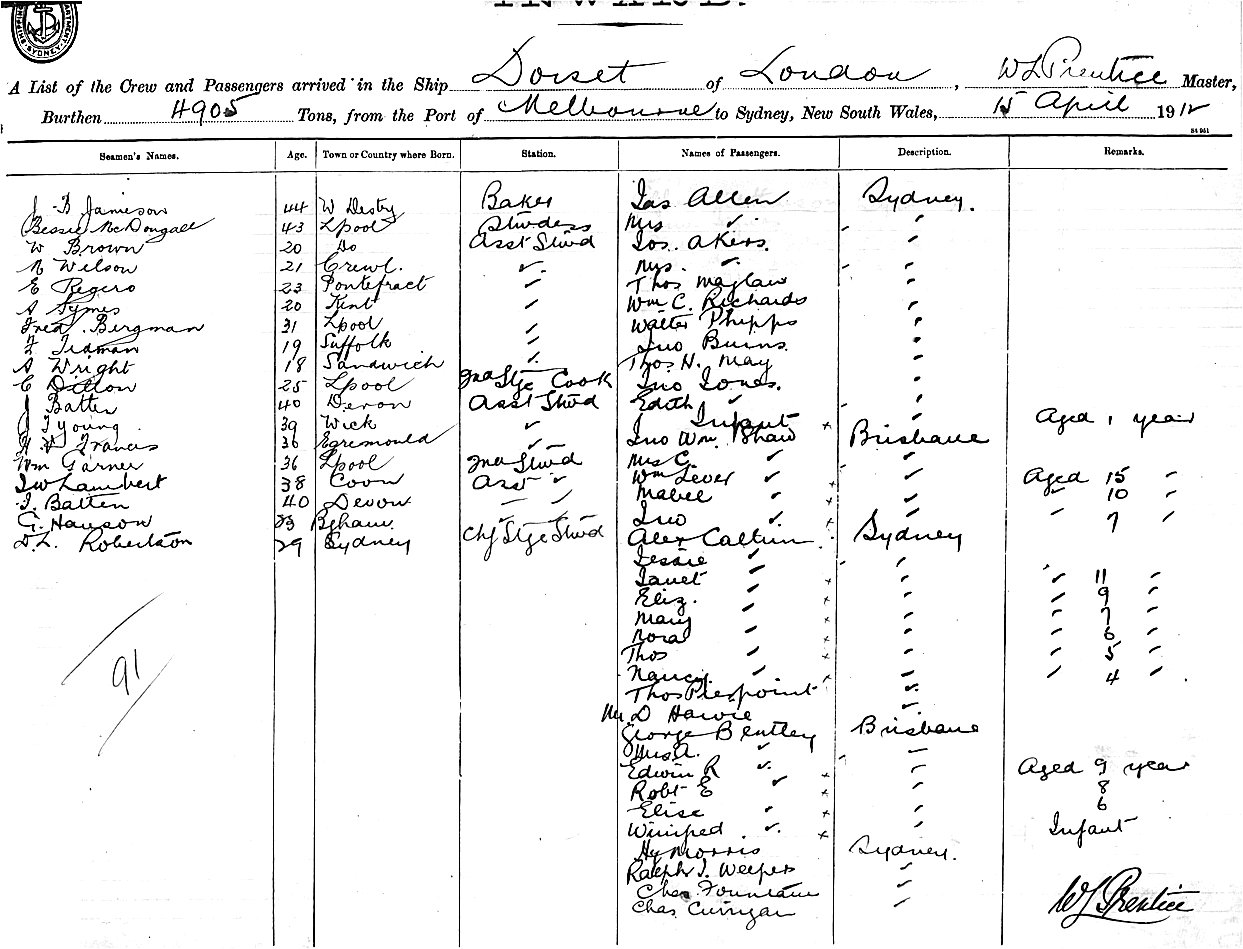 INWARD.
SYDNEY
A List of the Crew and Passengers arrived in the Ship Dorset of London, W L Prentice Master,
Burthen 4905 Tons, from the Port of Melbourne to Sydney, New South Wales, 15 April 1912
Seamen's Names. Age. Town or Country where Born. Station. Names of Passengers. Description. Remarks.
J B Jamieson 44 W Desty Baker Jas Allen Sydney.
Bessie McDougall 43 Lpool Studess Mrs "
W Brown 20 Do Asst Stwd Jos. Akers. "
N Wilson 21 Crewl. " Mrs. " "
E Regero 23 Pontefract " Thos "
A Symes 20 Kent " Wm C. Richards "
Fred. Bergman 31 Lpool " Walter Phipps "
F Tidman 19 Suffolk " Jno Burns "
A Wright 18 Sandwich " Thos H. May "
C Dillon 25 Lpool 2nd Stge Cook Jno Jones. "
J Batten 40 Devon Asst Stwd Edith " "
J Young 39 Wick " Infant + " Aged 1 year
Francis 36 Egremould " Jno Wm Shaw Brisbane
Wm Garner 36 Lpool 2nd Stwd Mrs C. " "
J W Lambert 38 Asst " Wm Lever " + " Aged 15 "
J. Batten 40 Devon " " Mabel " + " " 10 "
G. Hanson 23 Bgham. " " Jno " + Sydney " 7 "
D. L. Robertson 29 Sydney Chf Stge Stwd Alex Sydney
Jessie " "
Janet " + " " 11 "
Eliz. " + " " 9 "
Mary " + " " 7 "
Nora " + " " 6 "
Thos " + " " 5 "
Nancy. " + " " 4 "
Thos Pierpoint "
Mr. D Hawie "
George Bentley Brisbane
Mrs A. " "
Edwin R " + " Aged 9 year
Robt E " + " 8
Elise " + " 6
Winifred " + " Infant
Hy Morris Sydney.
Ralph J. Weepers "
Chas. Fountain "
Chas. Curigan "
91
W L Prentice